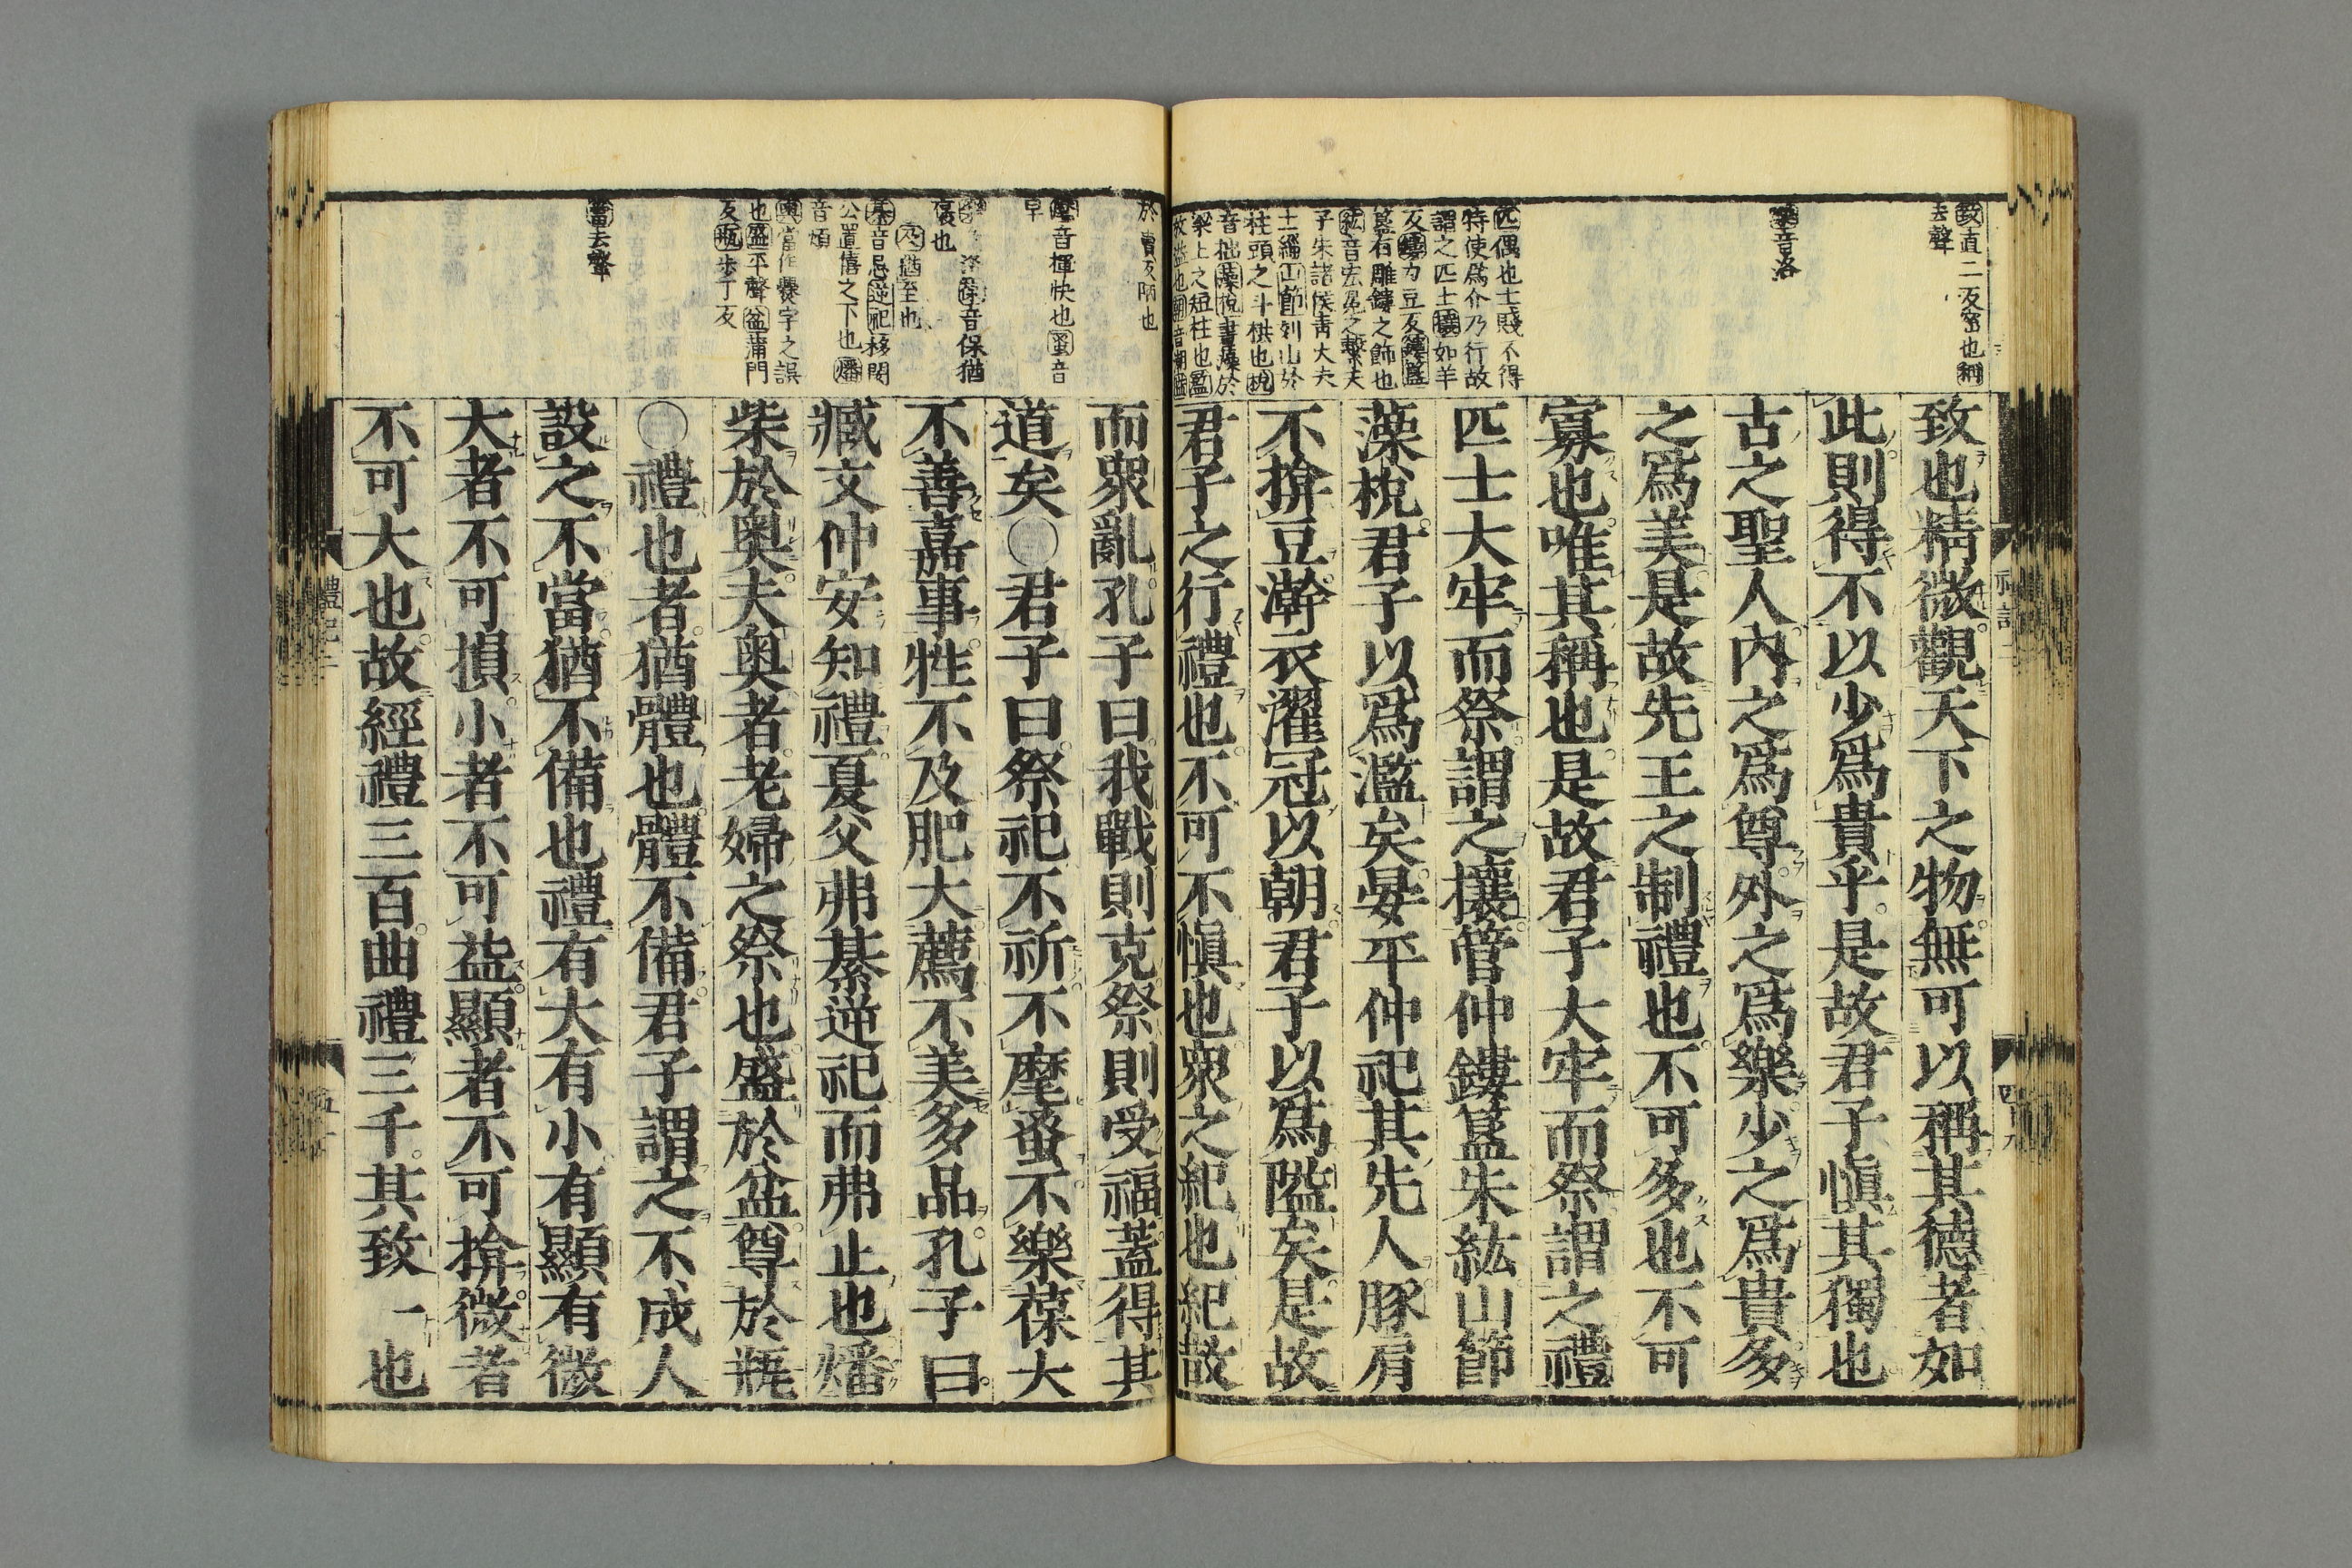 致直二反密也稱
去聲
樂音洛
匹偶也士賤不得
特使爲介乃行故
謂之匹士攘如羊
反鏤力豆反鏤簋
簋有雕鏤之飾也
紘音宏冕之繫天
子朱諸侯青大夫
士緇山節刻山於
柱頭之斗栱也梲
音拙藻梲畫藻於
梁上之短柱也濫
致也精微觀天下之物無可以稱其德者如
此則得不以少爲貴乎是故君子愼其獨也
古之聖人內之爲尊外之爲樂少之爲貴多
之爲美是故先王之制禮也不可多也不可
寡也唯其稱也是故君子大牢而祭謂之禮
匹士大牢而祭謂之攘管仲鏤簋朱紘山節
藻梲君子以爲濫矣晏平仲祀其先人豚肩
不揜豆澣衣濯冠以朝君子以爲隘矣是故
君子之行禮也不可不愼也衆之紀也紀散
禮記二
於賣反陋也
麾音揮快也蚤音
早
洛葆音保猶
襃也
及猶至也
綦音忌逆祀移閔
公置僖之下也燔
音煩
奧當作爨字之誤
也盛平聲盆蒲門
反瓶步丁反
當去聲
而衆亂孔子曰我戰則克祭則受福蓋得其
道矣○君子曰祭祀不祈不麾蚤不樂葆大
不善嘉事牲不及肥大薦不美多品孔子曰
臧文仲安知禮夏父弗綦逆祀而弗止也燔
柴於奧夫奧者老婦之祭也盛於盆尊於瓶
○禮也者猶體也體不備君子謂之不成人
設之不當猶不備也禮有大有小有顯有微
大者不可損小者不可益顯者不可揜微者
不可大也故經禮三百曲禮三千其致一也